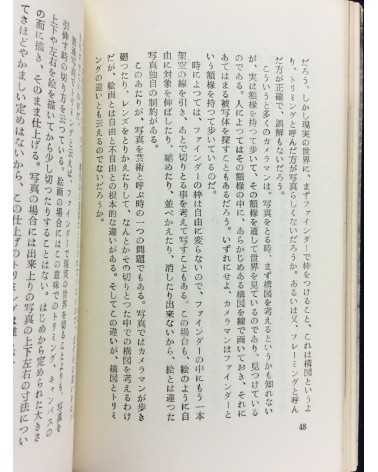 48
だろう。しかし現実の世界を、まずファインダーで枠をつけること、これは構図というよ
り、トリミングと呼んだ方が写真らしくないだろうか。あるいは又、フレーミングと呼ん
だ方が正確で、誤解もないだろう。
こういうと多くのカメラマンは、写真をとる時、まず構図を考えるというかも知れない
が、実は額椽を持って歩いて、その額椽を通して世界を見ているのであり、見つけている
のである。人によってはその額椽の中に、あらかじめある構図を線で画いておき、それに
あてはまる被写体を探すこともあるだろう。いずれにせよ、カメラマンはファインダーと
いう額椽を持って歩いているのだ。
時によっては、ファインダーの枠は自由に変らないので、ファインダーの中にもう一本
架空の線を引き、あとで切りとる事を考えて写すこともある。この場合も、絵のように自
由に対象を伸ばしたり、縮めたり、並べかえたり、消したり出来ないから、絵とは違った
写真独自の制約がある。
このあたりが、写真を芸術と呼ぶ時の一つの問題でもある。写真ではカメラマンが歩き
廻ったり、レンズをとりかえたりして、なんとかその切りとった中での構図を考えるわけ
だが、絵画とは自由と不自由との根本的な違いがある。そしてこの違いが、構図とトリミ
ングの違いとも云えるのでないだろうか。
普通写真でトリミングと云えば、ファインダーで現実の世界を切ることよりも、写真を
引伸す時の切り方を云っている。絵画の場合にはこの意味でのトリミング、キャンバスの
上下や左右を絵を描いてから少し切ったりすることはない。はじめから定められた大きさ
の面に描き、そのまま仕上げる。写真の場合には出来上りの写真の上下左右の寸法につい
てさほどやかましい定めはないから、この仕上げのトリミングは